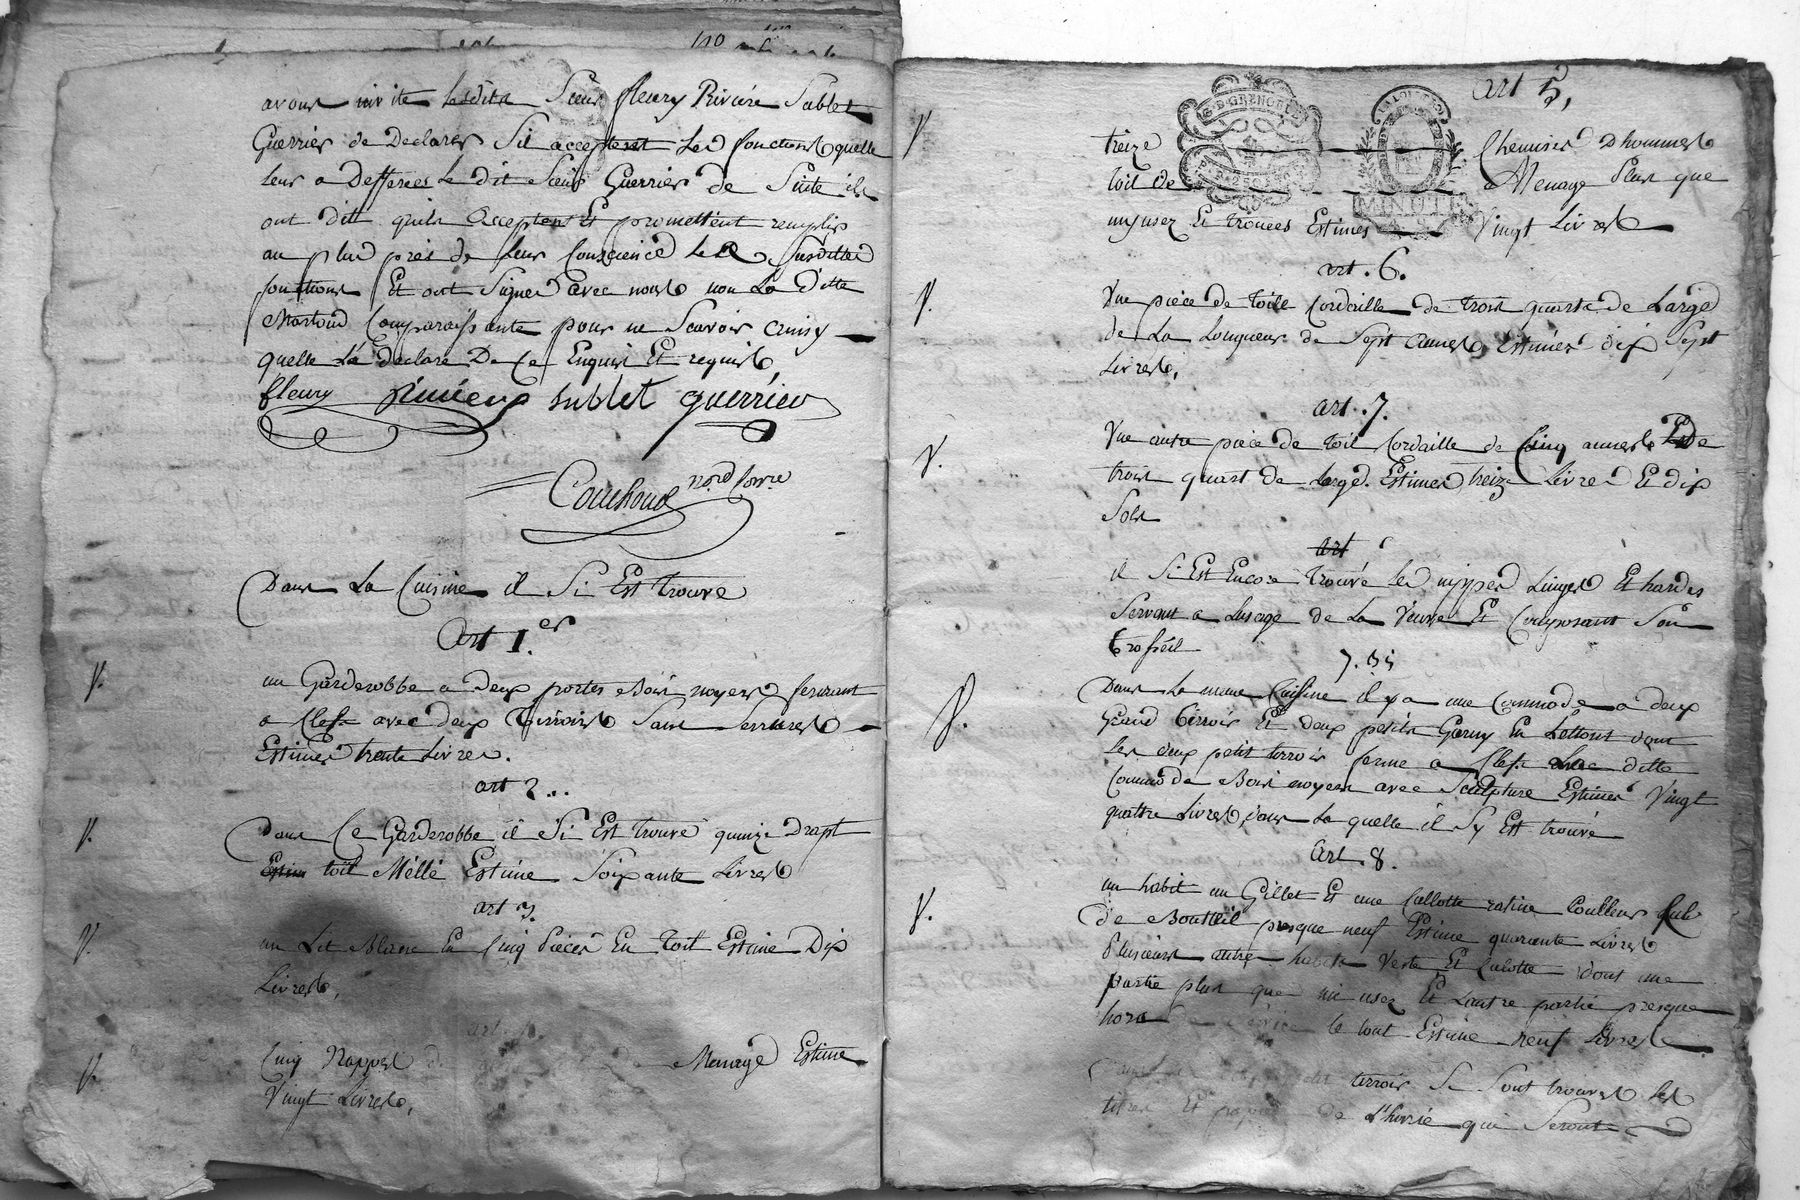 110
avons invité lesdits Sieur fleury Riviere Sublet
Guerrier de Declarer Sil acceptent les fonctions quelle
leur a defferees le dit Sieur Guerrier de Suite ils
ont ditt quils acceptent Et promettent remplir
au plus pres de leur Conscience les Susdittes
fonctions Et ont Signes avec nous non La ditte
Comparaissante pour ne Scavoir
quelle l'a declare De ce Enquis Et requis,
fleury riviere sublet guerrier
Couchoud
Dans La Cuisine il Si Est Trouve
art 1.er
un Garderobbe a deux portes Bois noyer fermant
a Clefs avec deux tirroirs Sans Serrures
Estimés trente Livres.
art 2...
Dans Ce Garderobbe il Si Est trouvé quinze Drapt
toil Mêllé Estimé Soixante Livres
art 3.
un Lit Blanc En Cinq pieces En Toil Estimé Dix
Livres,
art.
Cinq Nappes de Menage Estimé
Vingt Livres,
art 5,
G. D. GRENOBLE
LA LOI
MINUTE
treize Chemises Dhommes
toil de Menage Plus que
my usez Et trouees Estimes Vingt Livres
art. 6.
Une piece de toille Cordaille de trois quarts de Large
de La Longueur de Sept aunes Estimés dix Sept
Livres,
art. 7.
Une autre piece de toil Cordaille de Cinq aunes De
trois quart de large. Estimes treize Livres Et dix
Sols
art
il Si Est Encore Trouvé les nippes Linges Et hardes
Servant a Lusage de La Veuve Et Composant Son
trosseil
7. Bis
Dans La meme Cuisine il y a une Commode a deux
Grand tirroir Et deux petits Garny En Lottons dont
les deux petit tirroir ferme a Clefs ditte
Commode Bois noyer avec Sculpture Estimes Vingt
quattre Livres, dans La quelle il Sy Est trouvé
art. 8.
un habit un Gillet Et une Callotte ratine Coulleur
de Bouteil presque neuf Estimé quarante Livres
Plusieurs autre habits Veste Et Culotte dont une
partie plus que mi usez Et Lautre partie presque
hors de service le tout Estimé neuf Livres
tirroir Se Sont trouves les
titres Et papiers de L'hoirie qui Seront